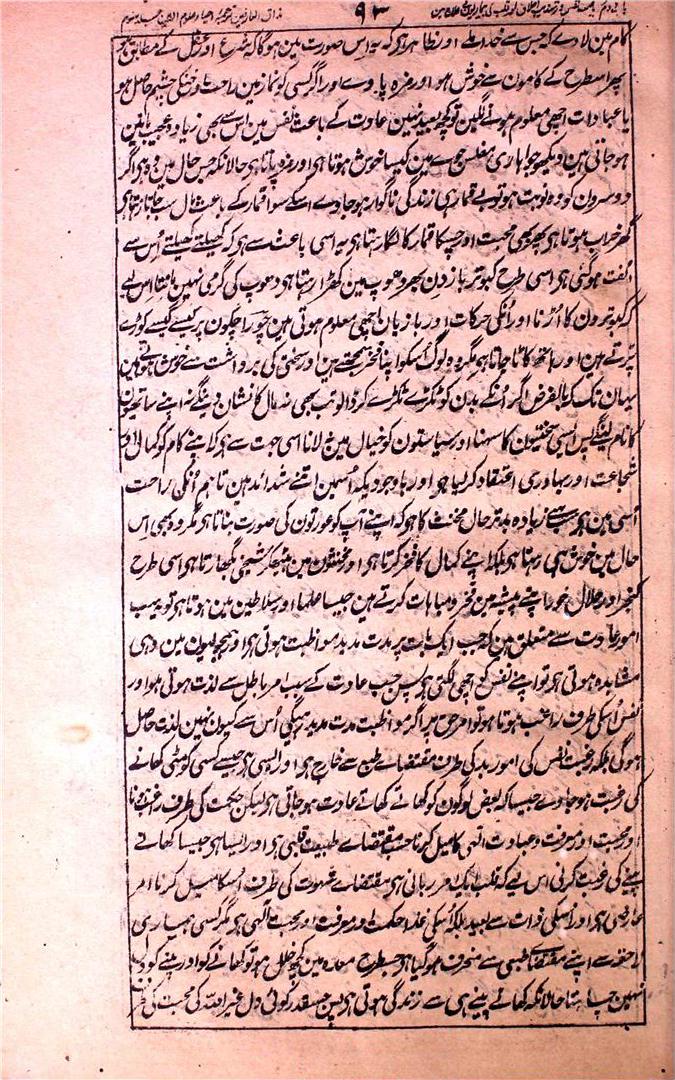 ۹۳
کام مین لاوے کہ جس سے خدا ملے اور ظاہر ہو کہ یہ اس صورت مین ہوگا کہ شرع اور عقل کے مطابق ہو
پھر اسطرح کے کامون سے خوش ہو اور مزہ پاوے اور اگر کسی کو نماز مین راحت و خنکی چشم حاصل ہو
یا عبادات اچھی معلوم ہونے لگین تو کچھ بعید نہین عادت کے باعث نفس مین اس سے بھی زیادہ عجیب باتین
ہو جاتی ہین دیکھو جواہاری مفلس جوے مین کیسا خوش ہوتا ہی اور مزہ پاتا ہی حالانکہ جس حال مین وہ ہی اگر
دوسرون کو وہ نوبت ہو تو بے قمار ہی زندگی ناگوار ہو جاوے اسکے سوا قمار کے باعث مال سب جاتا رہتا ہی
گھر خراب ہوتا ہی پھر بھی محبت اور چسکا قمار کا لگا رہتا ہی یہ اسی باعث سے ہو کہ کھیلتے کھیلتے اُس سے
الفت ہوگئی ہی اسی طرح کبوتر باز دن بھر دھوپ مین کھڑا رہتا ہی دھوپ کی گرمی نہین مانتا اس لیے
کہ کبوترون کا اُڑنا اور اُنکی حرکات اور بازیان اچھی معلوم ہوتی ہین چور اچکون پر کیسے کیسے کوڑے
پڑتے ہین اور ہاتھ کاٹا جاتا ہو مگر وہ لوگ اسکو اپنا فخر سمجھتے ہین اور سختی کی برداشت سے خوش ہوتے ہین
یہان تک کہ بالفرض اگر اُنکے بدن کو ٹکڑے ٹکڑے کر ڈالو تب بھی نہ مال کا نشان دینگے نہ اپنے ساتھیون
کا نام لینگے پس ایسی سختیون کا سہنا اور سیاستون کو خیال مین نہ لانا اسی جہت سے ہی کہ اپنے کام کو کمال اور
شجاعت اور بہادری اعتقاد کر لیا ہو اور باوجودیکہ اُسمین اتنے شدائد ہین تاہم اُنکی راحت
اُسی مین ہو سب سے زیادہ بدتر حال مخنث کا ہو کہ اپنے آپ کو عورتون کی صورت بناتا ہی مگر وہ بھی اس
حال مین خوش ہی رہتا ہی بلکہ اپنے کمال کا فخر کرتا ہی اور مخنثون مین بیٹھکر شیخی بگھارتا ہی اسی طرح
اپنے پیشہ مین فخر و مباہات کرتے ہین جیسا علما اور سلاطین مین ہوتا ہی تو یہ سب
امور عادت سے متعلق ہین کہ جب ایک بات پر مدت مدید مواظبت ہوتی ہی اور ہمجولیون مین وہی
مشاہدہ ہوتی ہی تو اپنے نفس کو اچھی لگتی ہی پس جب عادت کے سبب امر باطل سے لذت ہوتی ہو اور
نفس اُسکی طرف راغب ہوتا ہو تو امر حق پر اگر مواظبت مدت مدید رہیگی اُس سے کیون نہین لذت حاصل
ہوگی بلکہ رغبت نفس کی امور بد کی طرف مقتضاے طبع سے خارج ہی اور ایسی ہی جیسے کسی کو مٹی کھانے
کی رغبت ہو جاوے جیسا کہ بعض لوگون کو کھاتے کھاتے عادت ہو جاتی ہی لیکن حکمت کی طرف رغبت کرنا
اور محبت اور معرفت و عبادت الٰہی کا میل کرنا حسب مقتضاے طبیعت قلبی ہی اور ایسا ہی جیسا کھانے
پینے کی رغبت کرنی اس لیے کہ قلب ایک امر ربانی ہی مقتضاے شہوت کی طرف اُسکا میل کرنا امر
عارضی ہی اور اُسکی ذات سے بعید بلکہ اُسکی غذا حکمت اور معرفت اور محبت آلٰہی ہی مگر کسی بیماری
لاحقہ سے اپنے مقتضاے طبعی سے منحرف ہو گیا ہو جسطرح معدہ مین کچھ خلل ہو تو کھانے کو اور پینے کو دل
نہین چاہتا حالانکہ کھانے پینے ہی سے زندگی ہوتی ہی پس جسقدر کوئی دل غیر اللہ کی محبت کی طرف